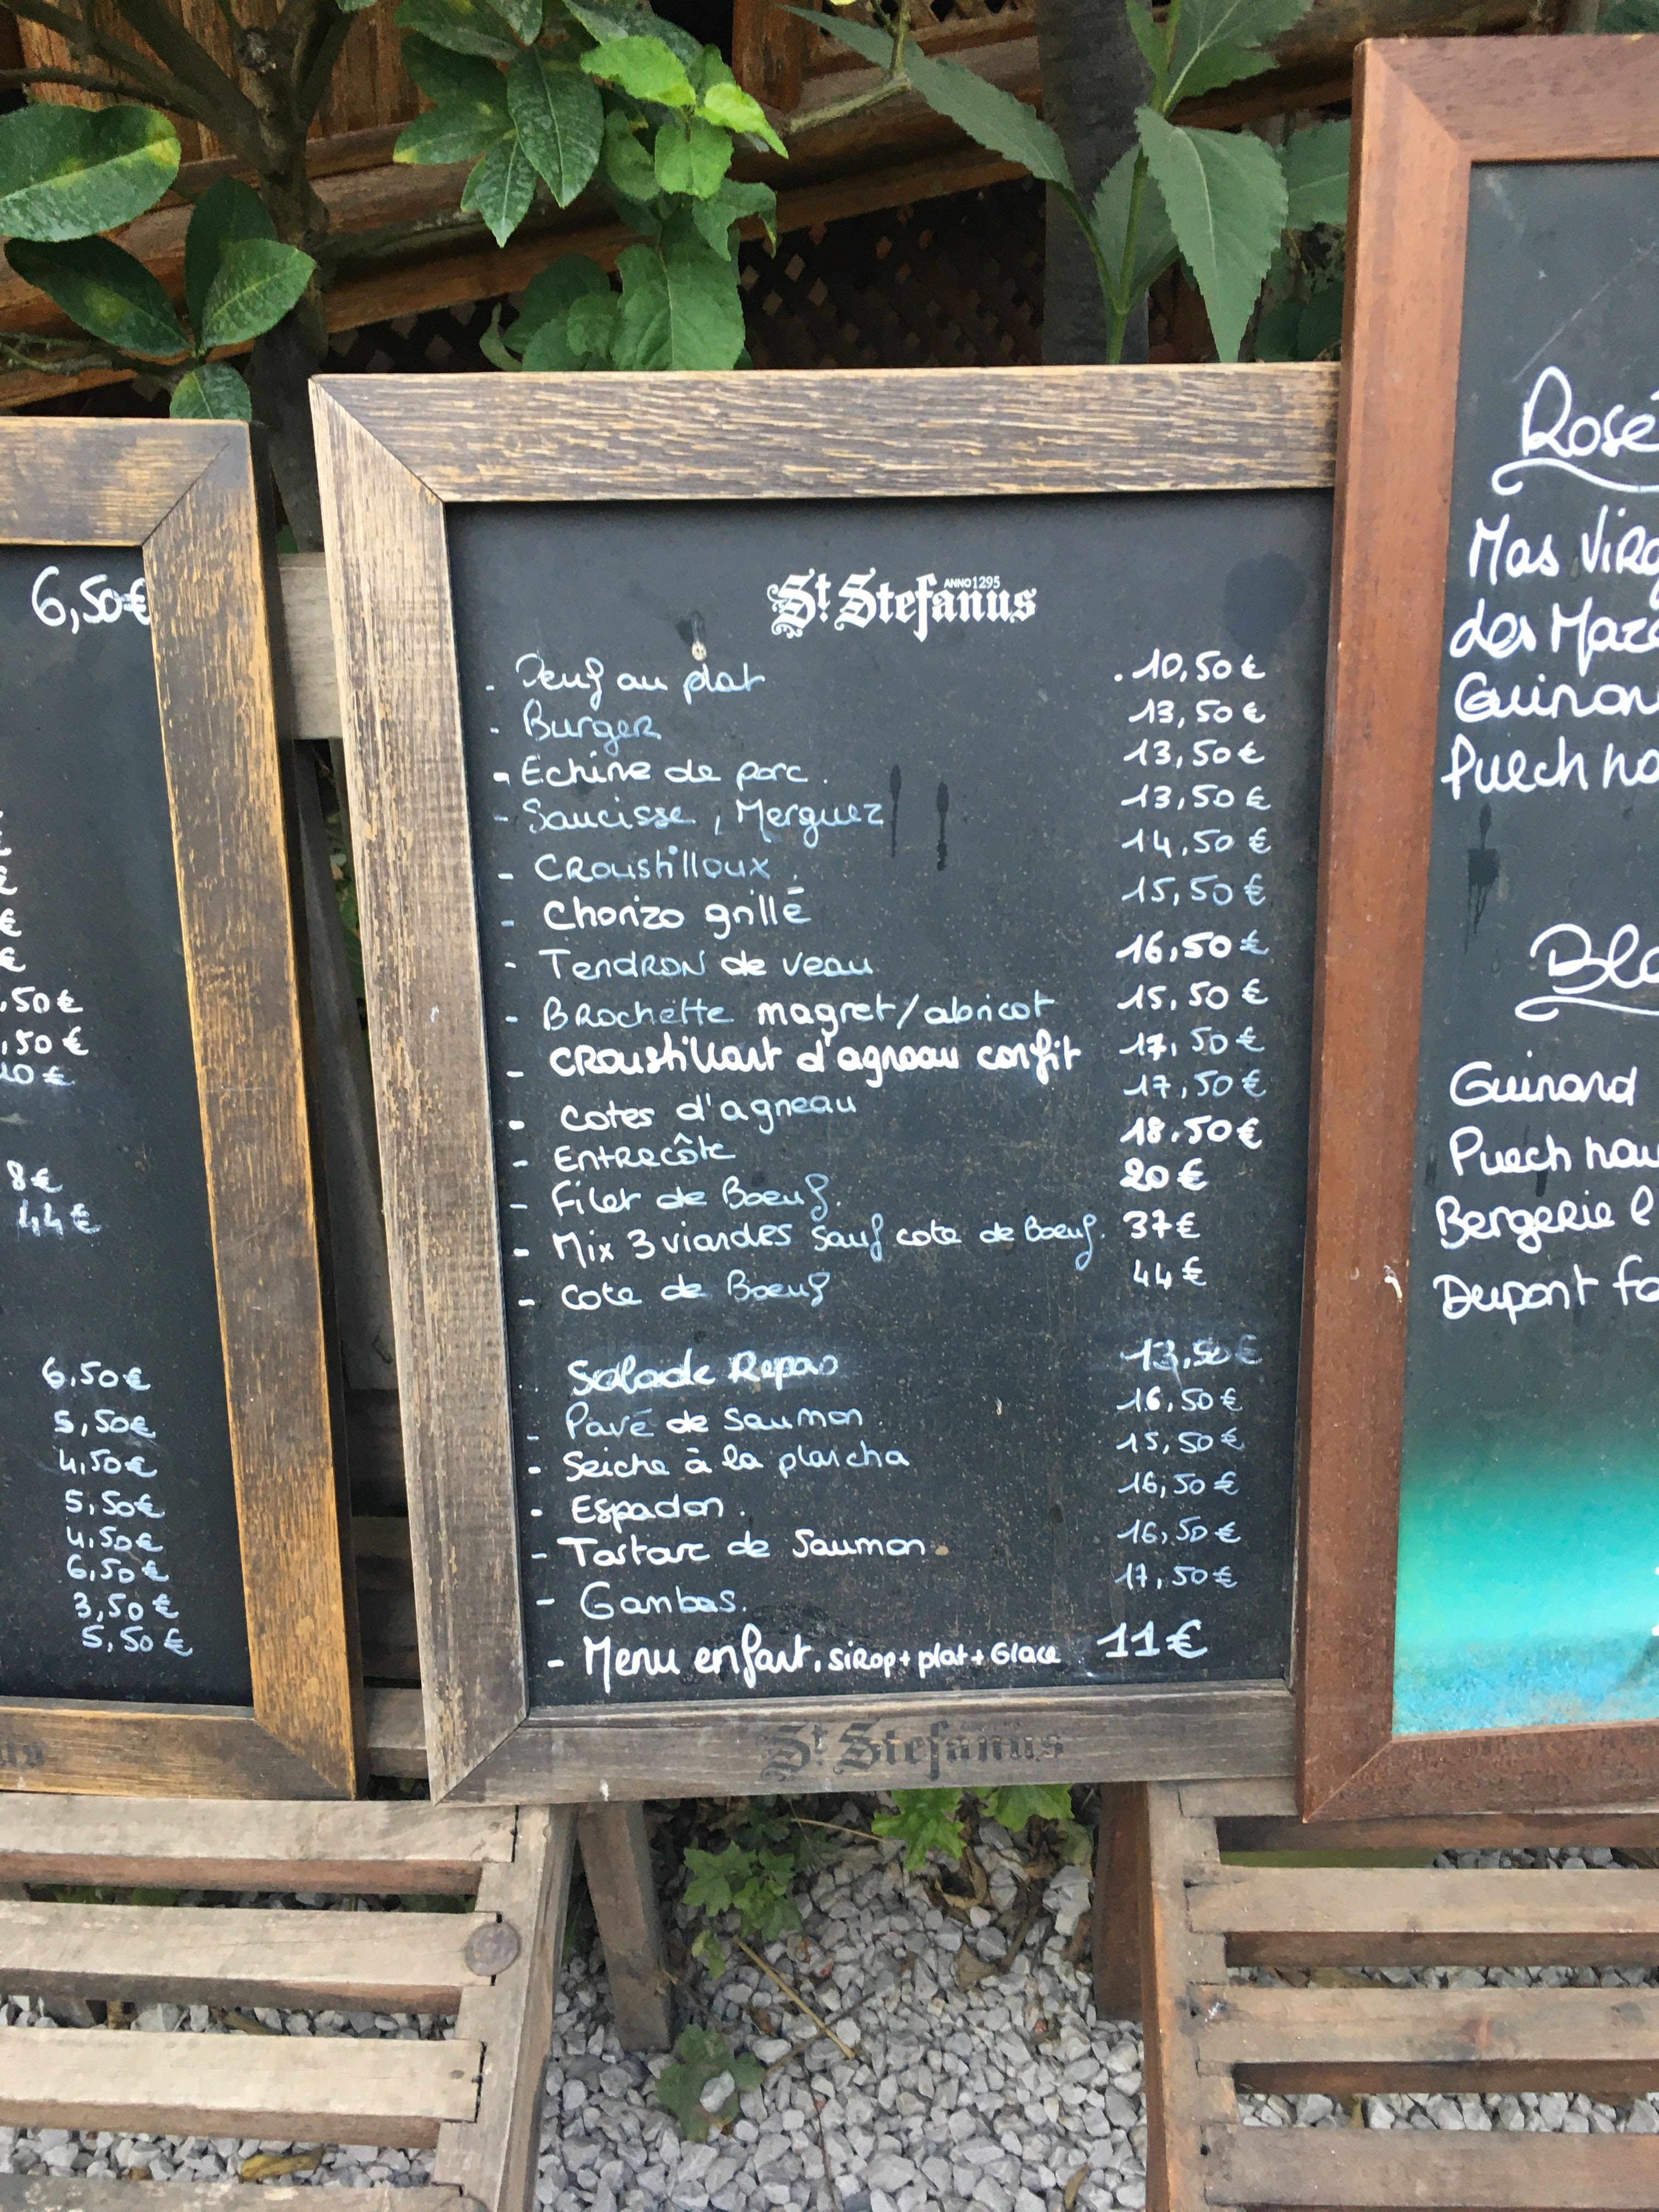 6,50€
,50€
,50€
10€
8€
44€
6,50€
5,50€
4,50€
5,50€
4,50€
6,50€
3,50€
5,50€
St Stefanus
ANNO 1295
- Oeuf au plat . 10,50€
- Burger 13,50€
- Echine de porc . 13,50€
- Saucisse, Merguez 13,50€
- Croustilloux . 14,50€
- Chorizo grillé 15,50€
- Tendron de veau 16,50€
- Brochette magret/abricot 15,50€
- Croustillant d'agneau confit 17,50€
- Cotes d'agneau 17,50€
- Entrecôte 18.50€
- Filet de Boeuf. 20€
- Mix 3 viandes sauf cote de boeuf. 37€
- Cote de Boeuf 44€
Salade Repas 13,50€
- Pavé de Saumon 16,50€
- Seiche à la plancha 15,50€
- Espadon . 16,50€
- Tartare de Saumon 16,50€
- Gambas. 17,50€
- Menu enfant, sirop + plat + Glace 11€
St Stefanus
Rosé
Mas Virg
des Marc
Guinon
Puech ha
Bla
Guinard
Puech hau
Bergerie l
Dupont fa